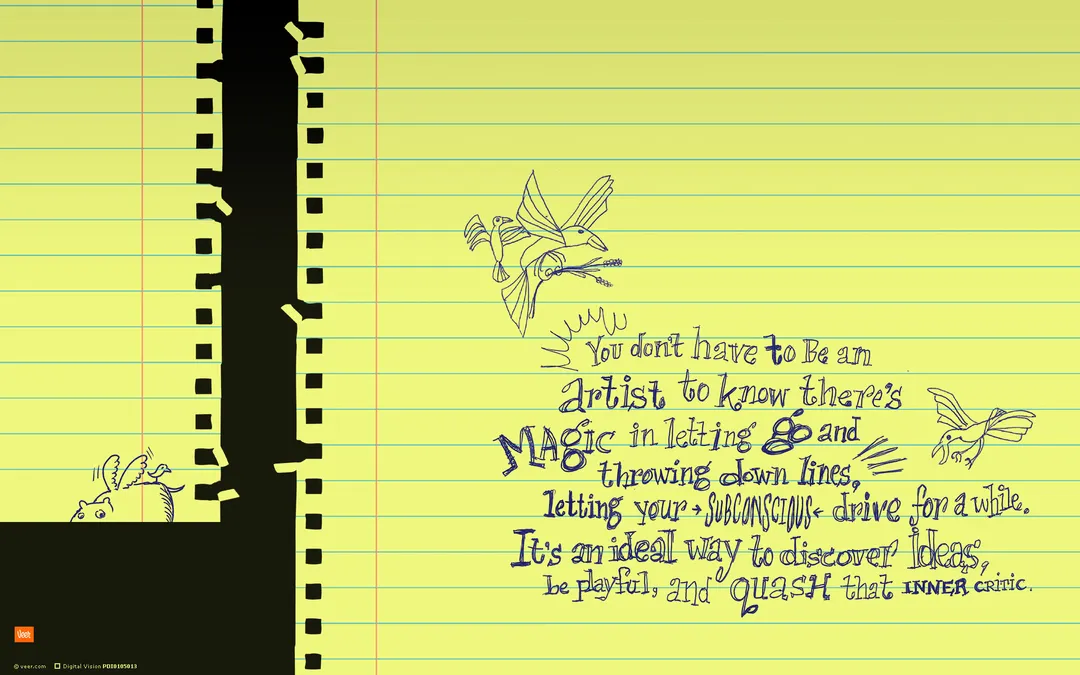 You don't have to Be an
artist to know there's
MAgic in letting go and
throwing down lines,
letting your → SUBCONSCIOUS ← drive for a while.
It's an ideal way to discover Ideas,
be playful, and quasH that INNER CRiTiC.
Veer
© veer.com Digital Vision PDI0105013